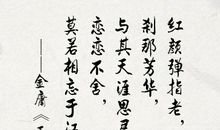 红颜弹指老，
刹那芳华，
与其天涯思
恋恋不舍，
莫若相忘于
——金庸《